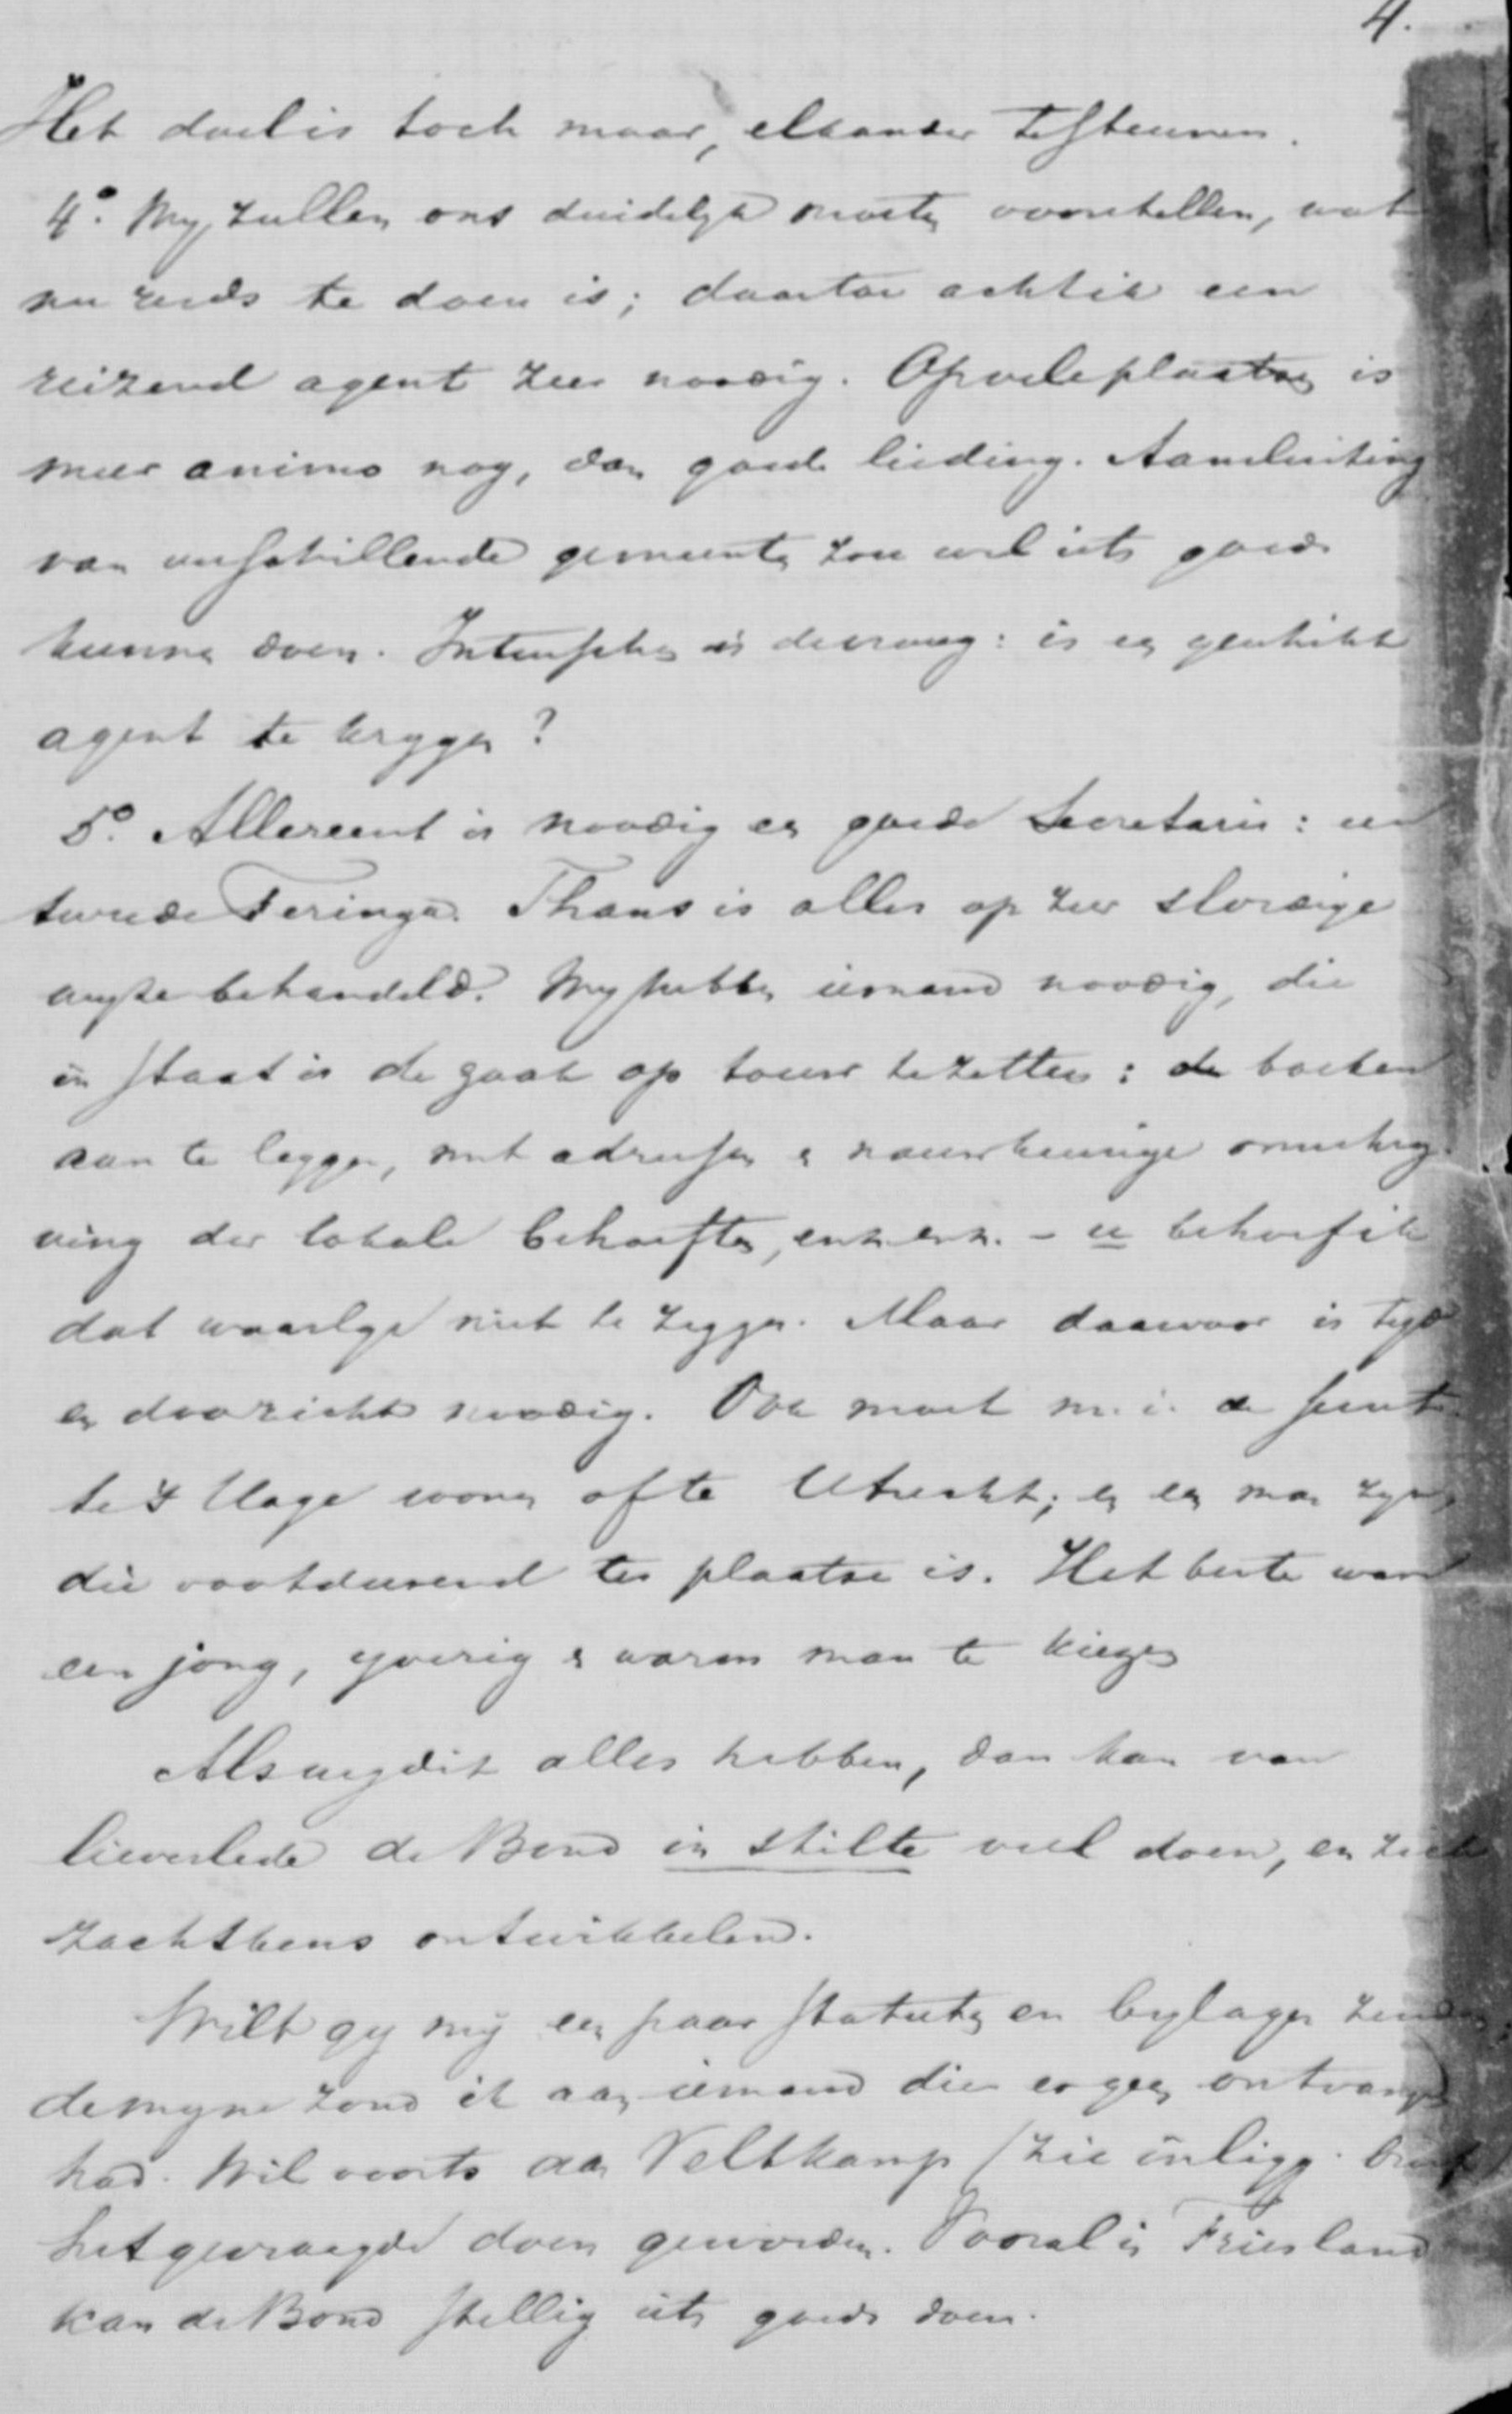 4.
Het doel is toch maar, elkander te steunen.
4°. Wy zullen ons duidelyk moeten voorstellen, wat
nu reeds te doen is; daartoe acht ik een
reizend agent zeer noodig. Op vele plaatsen is
meer animo nog, dan goede leiding. Aansluiting
van verschillende gemeenten zou wel iets goeds
kunnen doen. Intusschen is de vraag: is een geschikt
agent te krygen?
5°. Allereerst is noodig een goede Secretaris: een
tweede Feringa. Thans is alles op zeer slordige
wyze behandeld. Wy hebben iemand noodig, die
in staat is de zaak op touw te zetten: de boeken
aan te leggen, met adressen & nauwkeurige omschry-
ving der lokale behoeften, enz. enz. - u behoef ik
dat waarlyk niet te zeggen. Maar daarvoor is tyd
en doorzicht noodig. Ook moet m.i. de
te 's Hage wonen of te Utrecht; en een man zyn,
die voortdurend ter plaatse is. Het beste ware
een jong, yverig & warm man te kiezen
Als wy dit alles hebben, dan kan van
lieverlede de Bond in stilte veel doen, en zich
zachtkens ontwikkelen.
Wilt gy my een paar statuten en bylagen zenden
de myne zond ik aan iemand die er geen ontvangen
had. Wil voorts aan Veltkamp (zie inligg. brief)
het gevraagde doen geworden. Vooral in Friesland
kan de Bond stellig iets goeds doen.